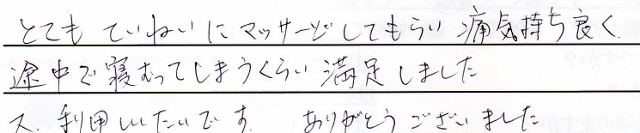 とても ていねいに マッサージしてもらい 痛気持ち良く
途中で寝むってしまうくらい 満足しました
又、利用したいです。 ありがとうございました